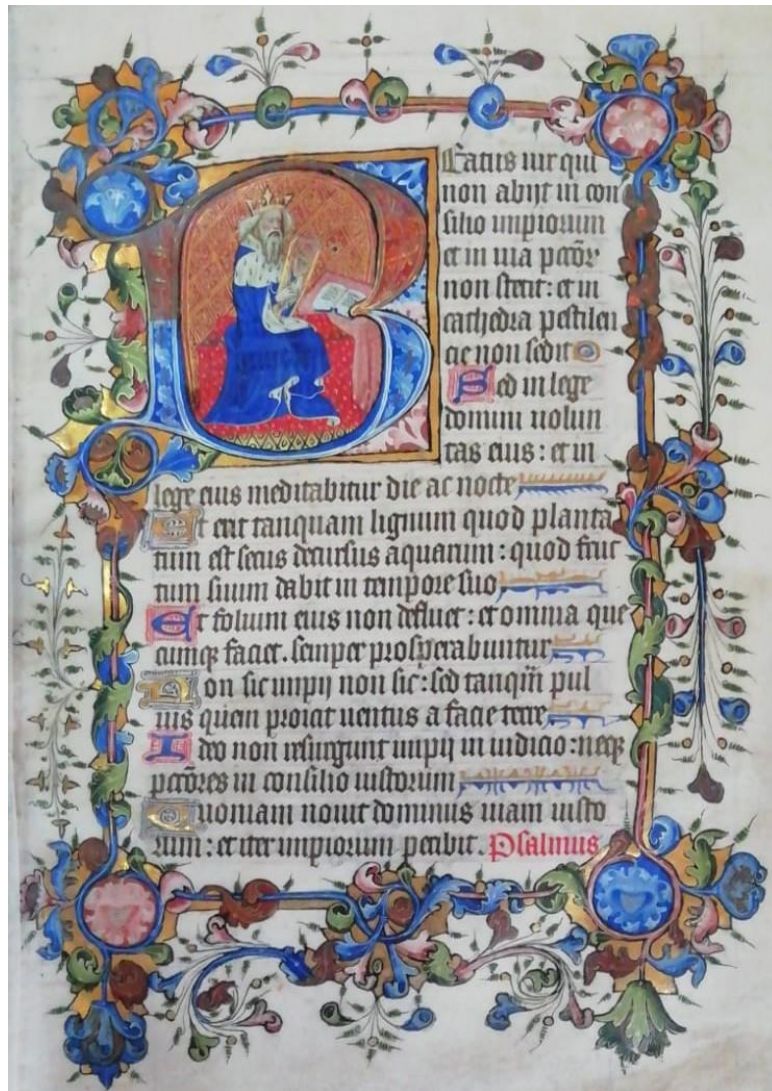 Beatus uir qui
non abijt in con
silio impiorum
et in uia pccōꝝ
non stetit: et in
cathedra pestilen
cie non sedit
Sed in lege
domini uolun
tas eius: et in
lege eius meditabitur die ac nocte
Et erit tanquam lignum quod planta
tum est secus decursus aquarum: quod fruc
tum suum dabit in tempore suo
Et folium eius non defluet: et omnia que
cumqꝫ faciet. semper prosperabuntur
Non sic impij non sic: sed tanqͣm pul
uis quem proicit uentus a facie terre
Ideo non resurgunt impij in iudicio: neqꝫ
pccōres in consilio iustorum
Quoniam nouit dominus uiam iusto
rum: et iter impiorum peribit. Psalmus